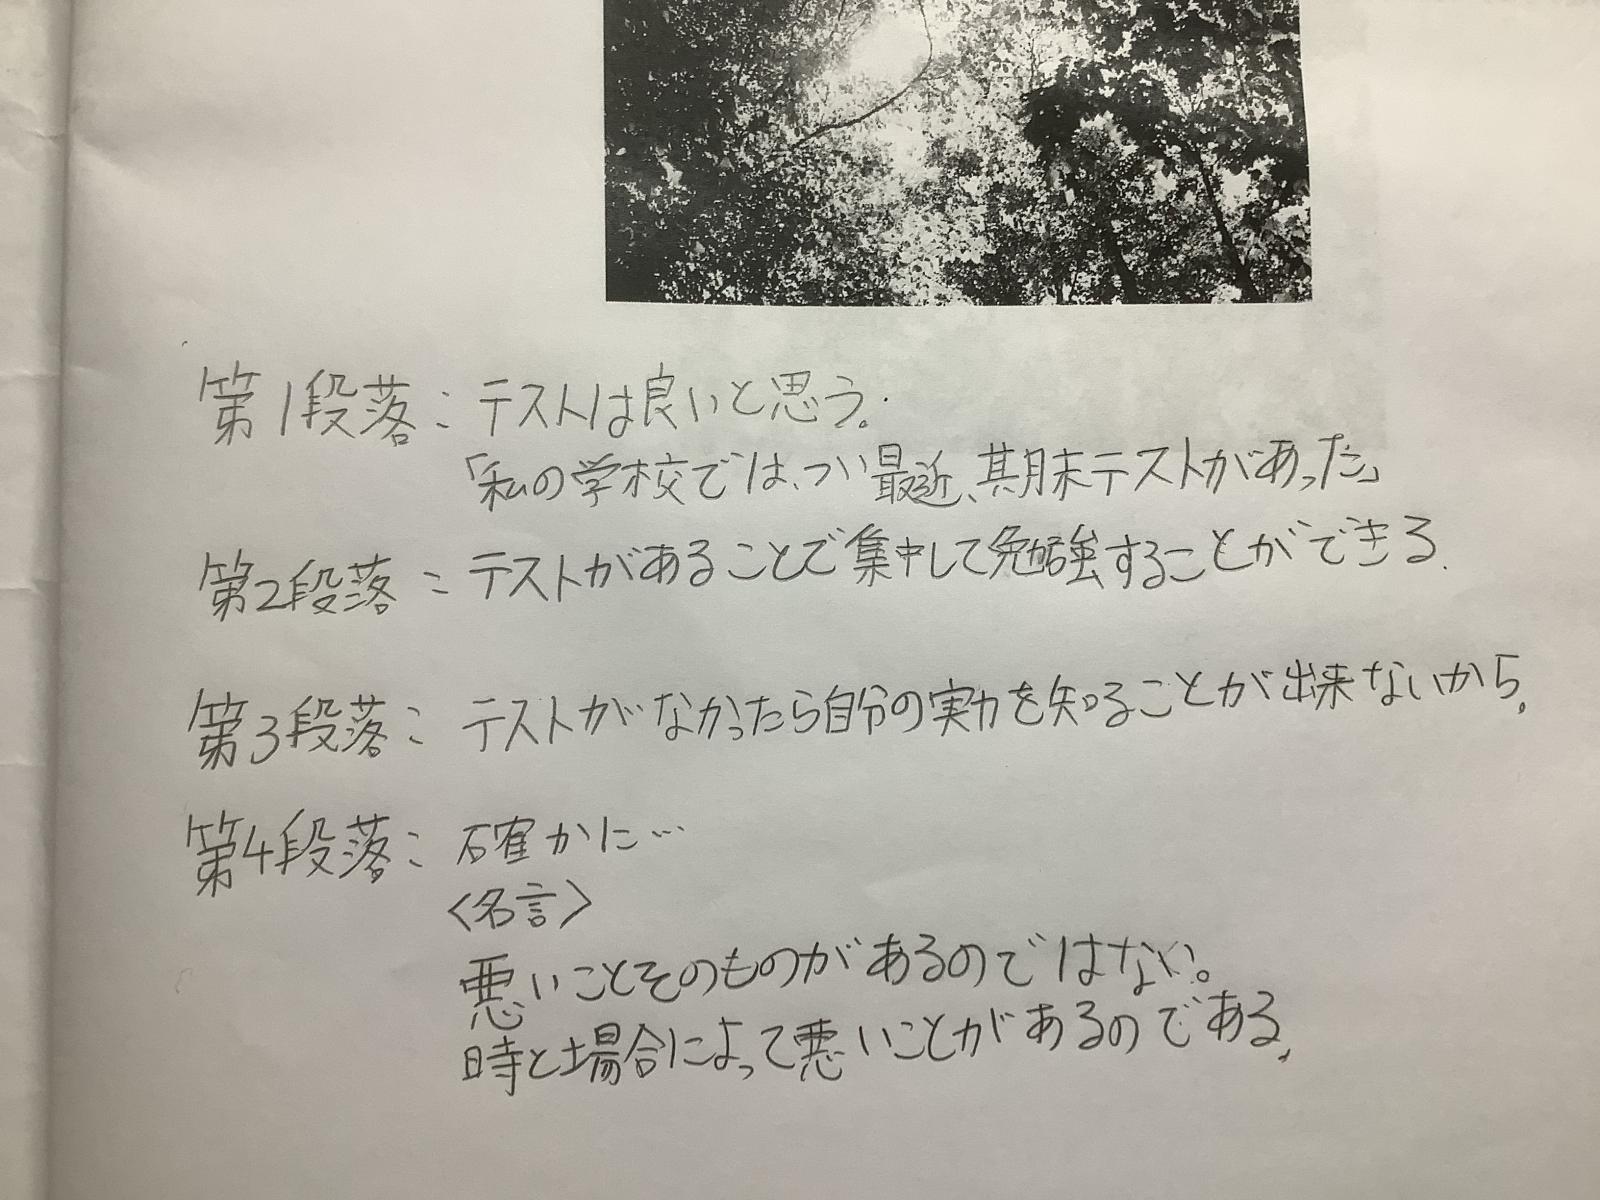 第1段落：テストは良いと思う。
「私の学校では、つい最近、期末テストがあった」
第2段落：テストがあることで集中して勉強することができる.
第3段落：テストがなかったら自分の実力を知ることが出来ないから。
第4段落：確かに…
〈名言〉
悪いことそのものがあるのではない。
時と場合によって悪いことがあるのである。